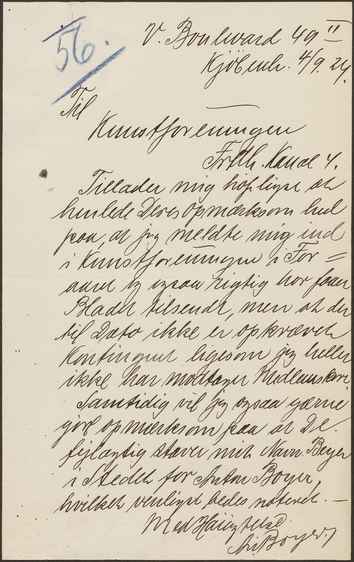 56.
V. Boulevard 49 II
Kjöbenh. 4/9. 24.
Til
Kunstforeningen
Frdh. Kanal 4.
Tillader mig höfligst at
henlede Deres Opmærksom hed
paa, at jeg meldte mig ind
i Kunstforeningen i For=
aaret og ogsaa rigtig har faaet
Bladet tilsendt, men at der
til Dato ikke er opkrævet
Kontingent ligesom jeg heller
ikke har modtaget Medlemskort.
Samtidig vil jeg ogsaa gærne
göre opmærksom paa at De
fejlagtig staver mit Navn Beyer
i Stedet for Anton Boyer,
hvilket venligst bedes noteret. —
Med Höiagtelse
Boyer.